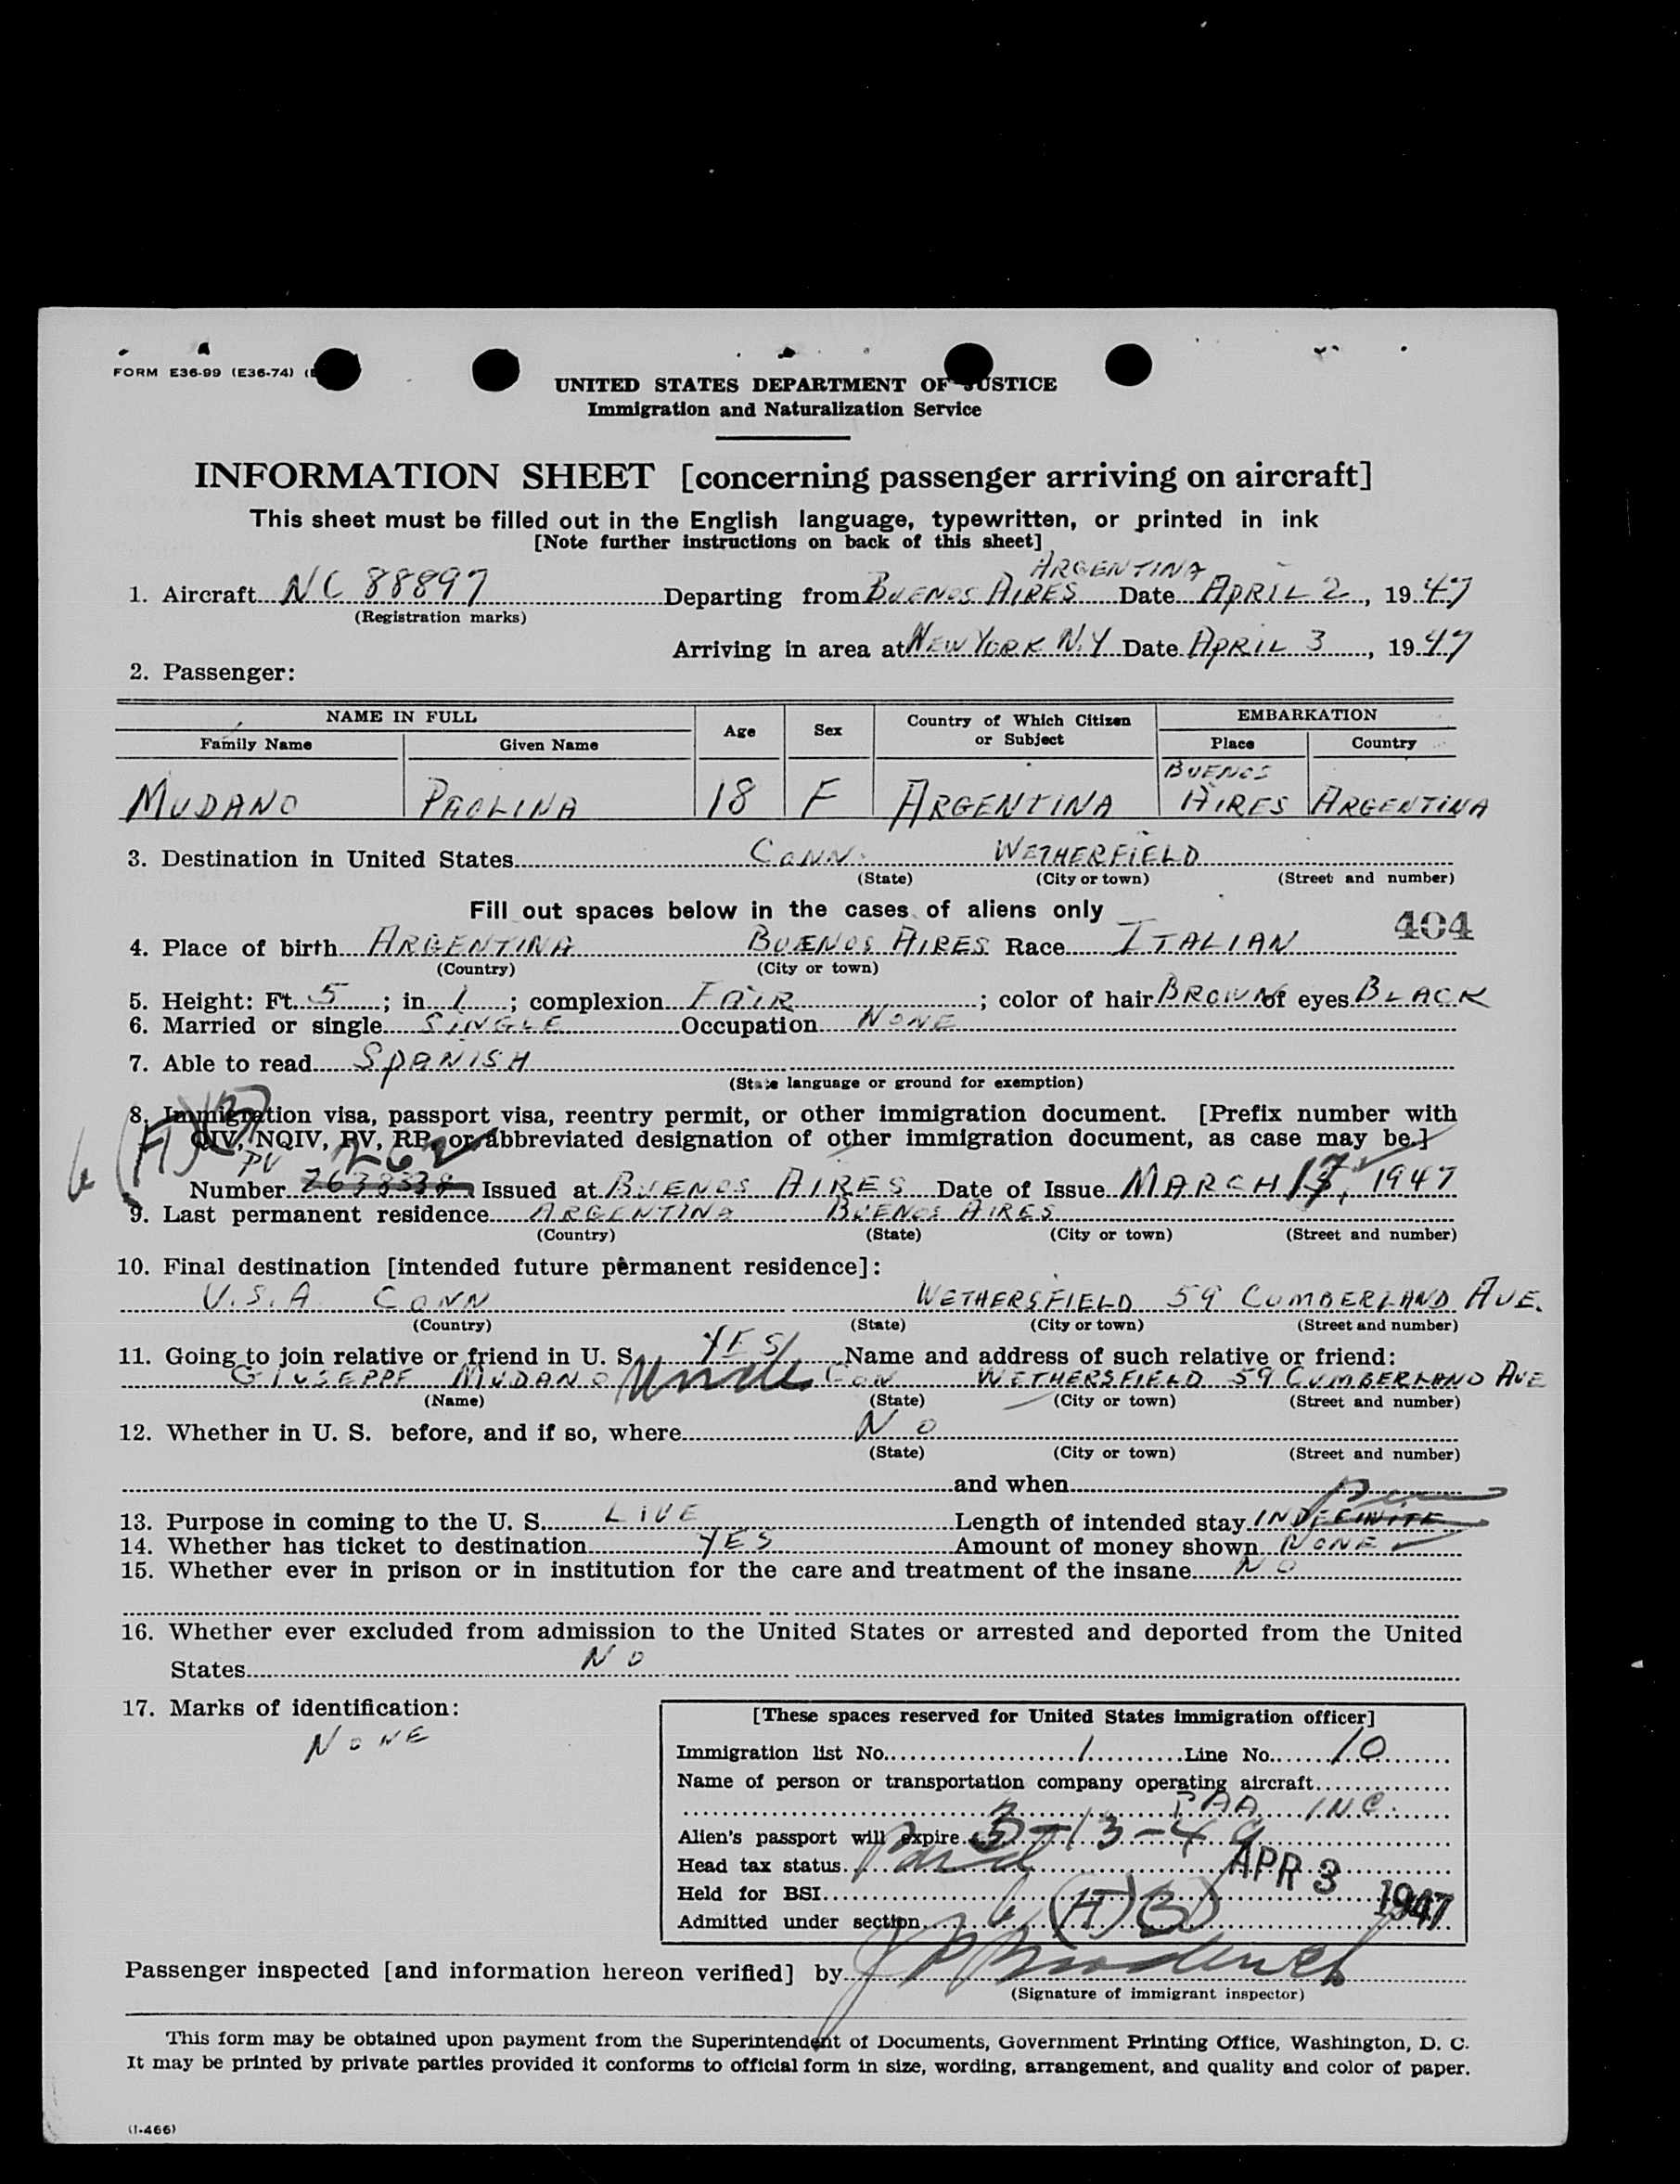 FORM E36-99 (E36-74)
UNITED STATES DEPARTMENT OF JUSTICE
Immigration and Naturalization Service
INFORMATION SHEET [concerning passenger arriving on aircraft]
This sheet must be filled out in the English language, typewritten, or printed in ink
[Note further instructions on back of this sheet]
ARGENTINA
1. Aircraft NC 88897 Departing from BUENOS AIRES Date APRIL 2, 1947
(Registration marks)
Arriving in area at NEW YORK N.Y Date APRIL 3, 1947
2. Passenger:
NAME IN FULL Age Sex Country of Which Citizen or Subject EMBARKATION
Family Name Given Name Place Country
MUDANO PAOLINA 18 F ARGENTINA BUENOS AIRES ARGENTINA
3. Destination in United States CONN. WETHERFIELD
(State) (City or town) (Street and number)
Fill out spaces below in the cases of aliens only
404
4. Place of birth ARGENTINA BUENOS AIRES Race ITALIAN
(Country) (City or town)
5. Height: Ft. 5; in. 1; complexion FAIR; color of hair BROWN of eyes BLACK
6. Married or single SINGLE Occupation NONE
7. Able to read SPANISH
(State language or ground for exemption)
8. Immigration visa, passport visa, reentry permit, or other immigration document. [Prefix number with
QIV, NQIV, PV, RP, or abbreviated designation of other immigration document, as case may be.]
6 (A)(3) PV 262
Number 2638538 Issued at BUENOS AIRES Date of Issue MARCH 13, 1947
9. Last permanent residence ARGENTINA BUENOS AIRES
(Country) (State) (City or town) (Street and number)
10. Final destination [intended future permanent residence]:
U.S.A. CONN WETHERSFIELD 59 CUMBERLAND AVE.
(Country) (State) (City or town) (Street and number)
11. Going to join relative or friend in U. S. YES Name and address of such relative or friend:
GIUSEPPE MUDANO Uncle CON WETHERSFIELD 59 CUMBERLAND AVE
(Name) (State) (City or town) (Street and number)
12. Whether in U. S. before, and if so, where NO
(State) (City or town) (Street and number)
and when
13. Purpose in coming to the U. S. LIVE Length of intended stay INDEFINITE
14. Whether has ticket to destination YES Amount of money shown NONE
15. Whether ever in prison or in institution for the care and treatment of the insane NO
16. Whether ever excluded from admission to the United States or arrested and deported from the United
States NO
17. Marks of identification:
NONE
[These spaces reserved for United States immigration officer]
Immigration list No. 1 Line No. 10
Name of person or transportation company operating aircraft
PAA INC.
Alien's passport will expire 3-13-49
Head tax status Paid
APR 3 1947
Held for BSI
Admitted under section 6 (A)(3)
Passenger inspected [and information hereon verified] by
(Signature of immigrant inspector)
This form may be obtained upon payment from the Superintendent of Documents, Government Printing Office, Washington, D. C.
It may be printed by private parties provided it conforms to official form in size, wording, arrangement, and quality and color of paper.
(I-466)